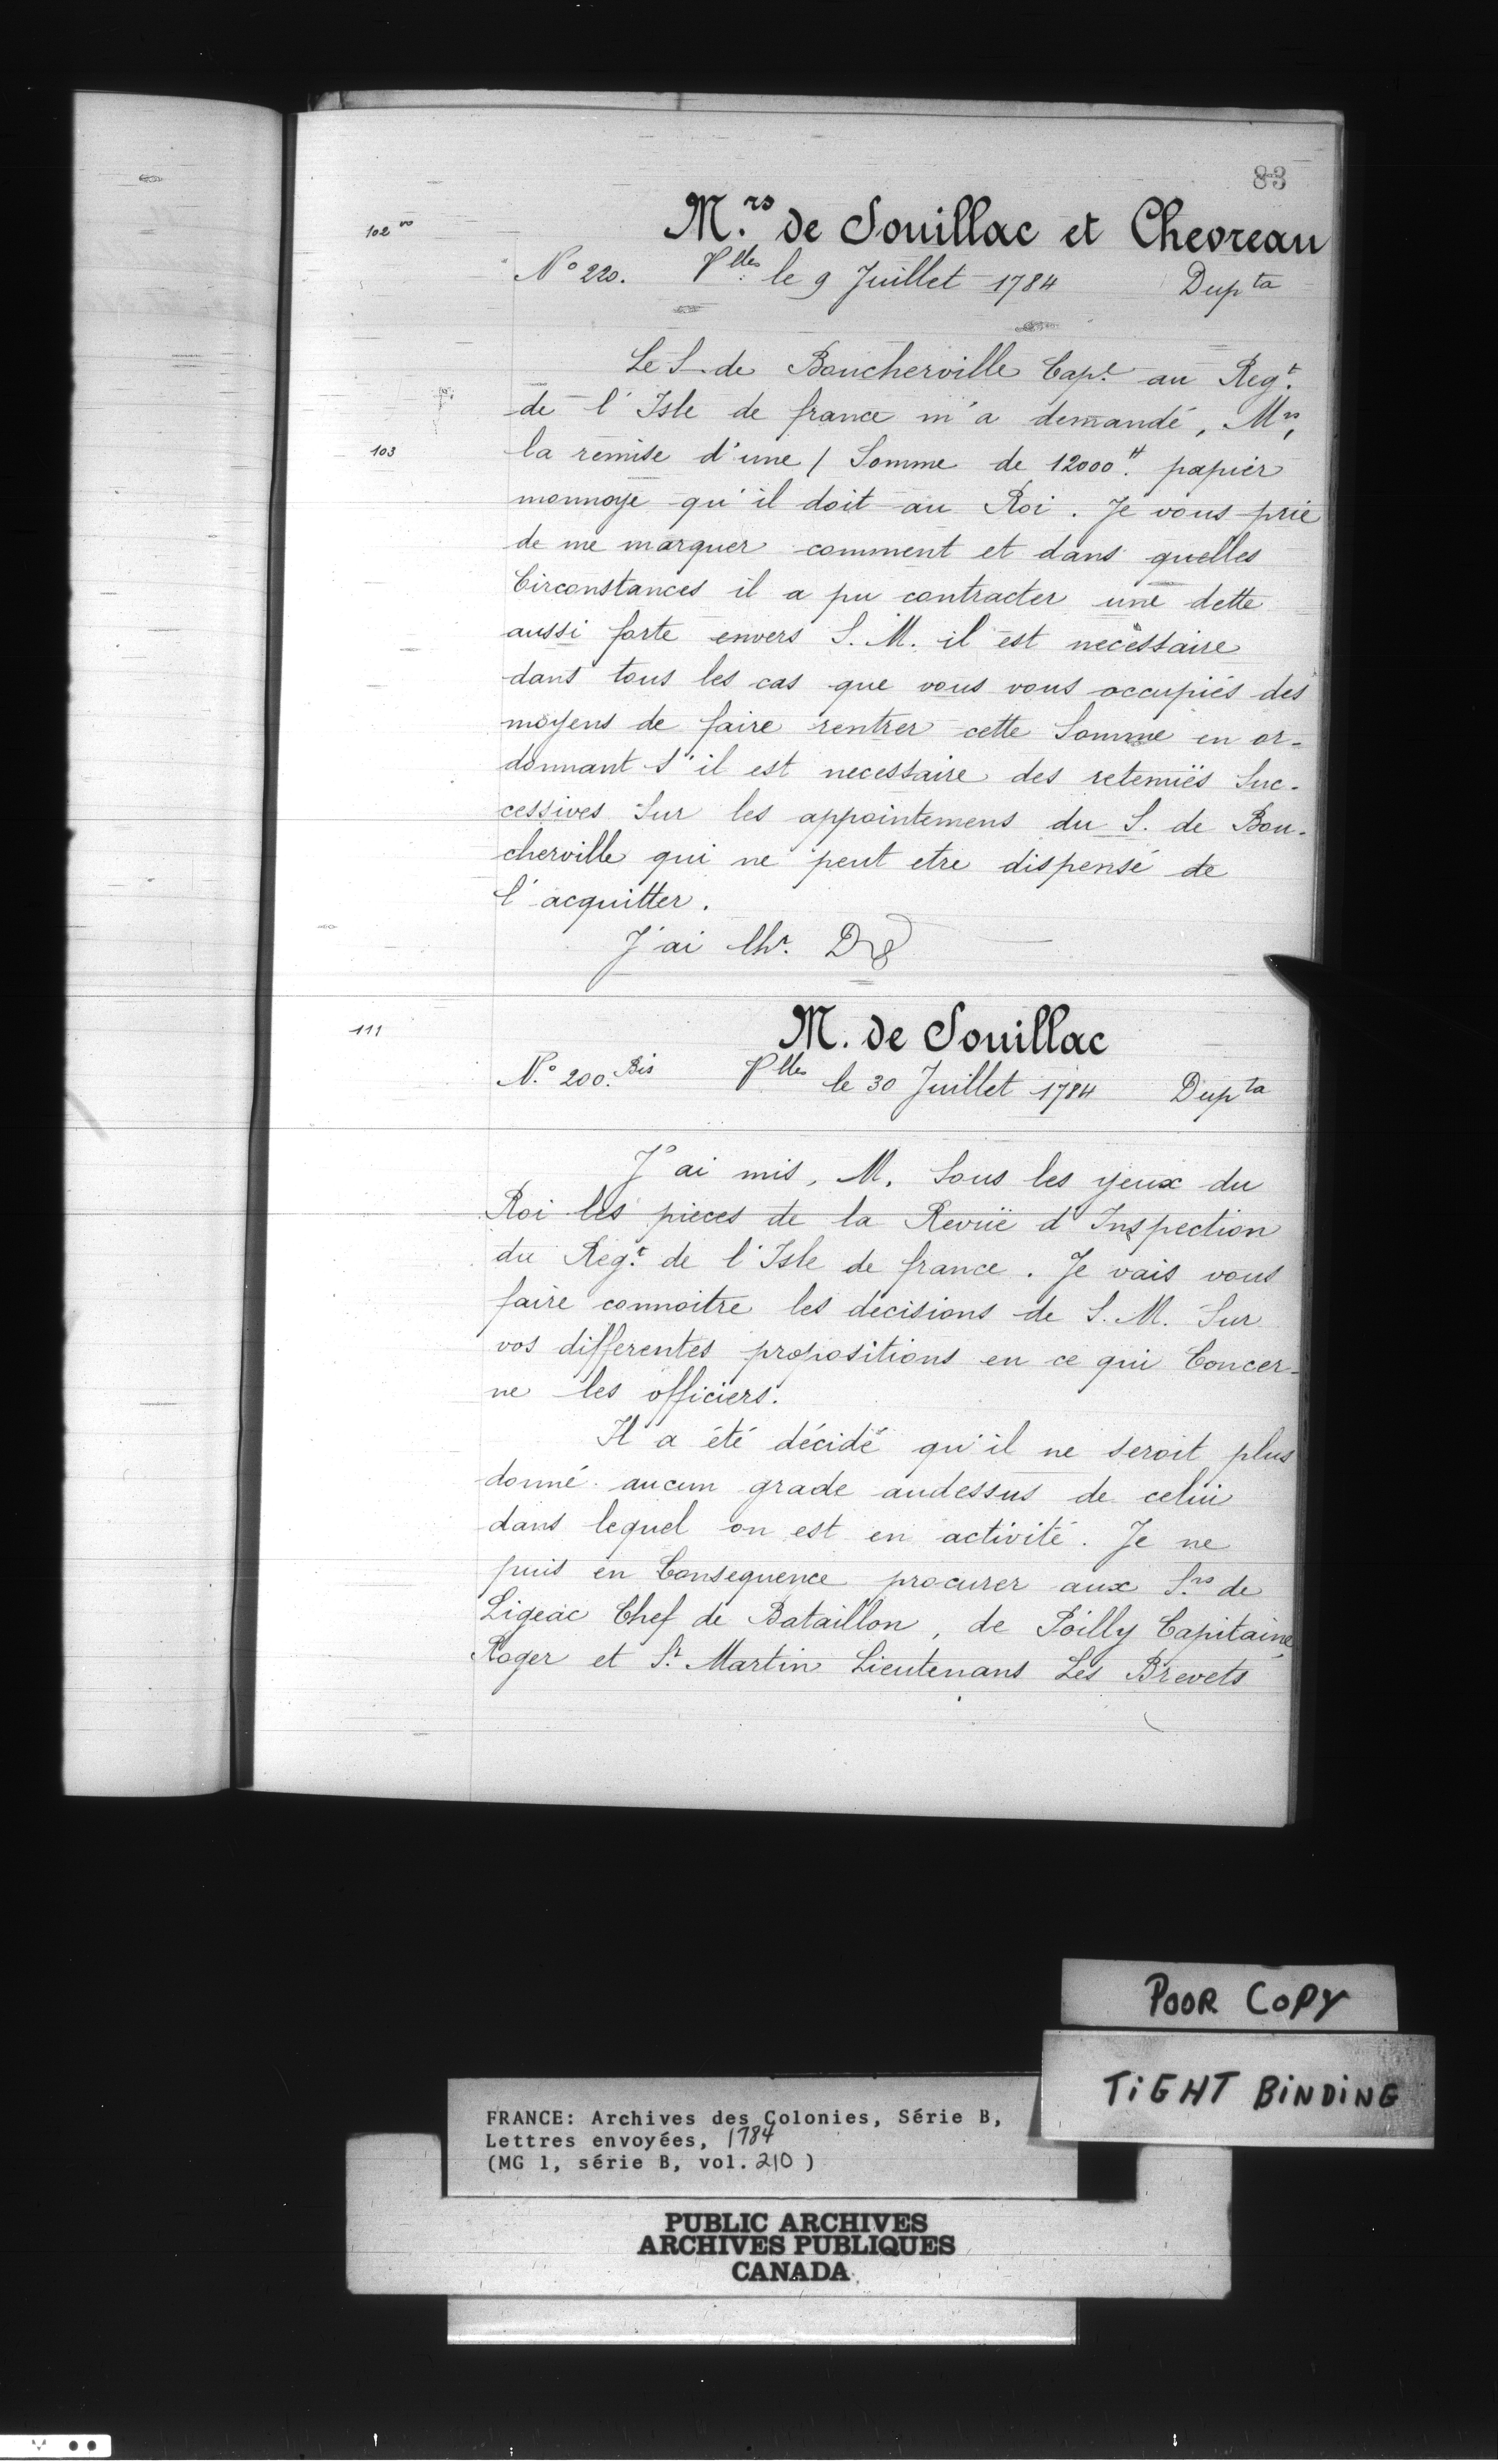 83
102 vo
M.rs de Souillac et Chevreau
N° 220. Vlles le 9 Juillet 1784 Dupta
Le S. de Boucherville Capt. au Regt.
de l'Isle de france m'a demandé, Mrs,
103
la remise d'une / Somme de 12000tt. papier
monnoye qu'il doit au Roi. Je vous prie
de me marquer comment et dans quelles
Circonstances il a pu contracter une dette
aussi forte envers S. M. il est necessaire
dans tous les cas que vous vous occupiés des
moyens de faire rentrer cette Somme en or-
donnant s'il est necessaire des retenuës Suc-
cessives Sur les appointemens du S. de Bou-
cherville qui ne peut etre dispensé de
l'acquitter.
J'ai lhr. D
111
M. de Souillac
N.° 200. Bis Vlles le 30 Juillet 1784 Dupta
J'ai mis, M. Sous les yeux du
Roi les pieces de la Revuë d'Inspection
du Regt. de l'Isle de france. Je vais vous
faire connoitre les decisions de S. M. Sur
vos differentes propositions en ce qui Concer-
ne les officiers.
Il a été décidé qu'il ne seroit plus
donné aucun grade audessus de celui
dans lequel on est en activité. Je ne
puis en Consequence procurer aux S.rs de
Ligeac Chef de Bataillon, de Poilly Capitaine,
Roger et St. Martin Lieutenans Les Brevets
POOR COPY
TIGHT BINDING
FRANCE: Archives des Colonies, Série B,
Lettres envoyées, 1784
(MG 1, série B, vol. 210 )
PUBLIC ARCHIVES
ARCHIVES PUBLIQUES
CANADA